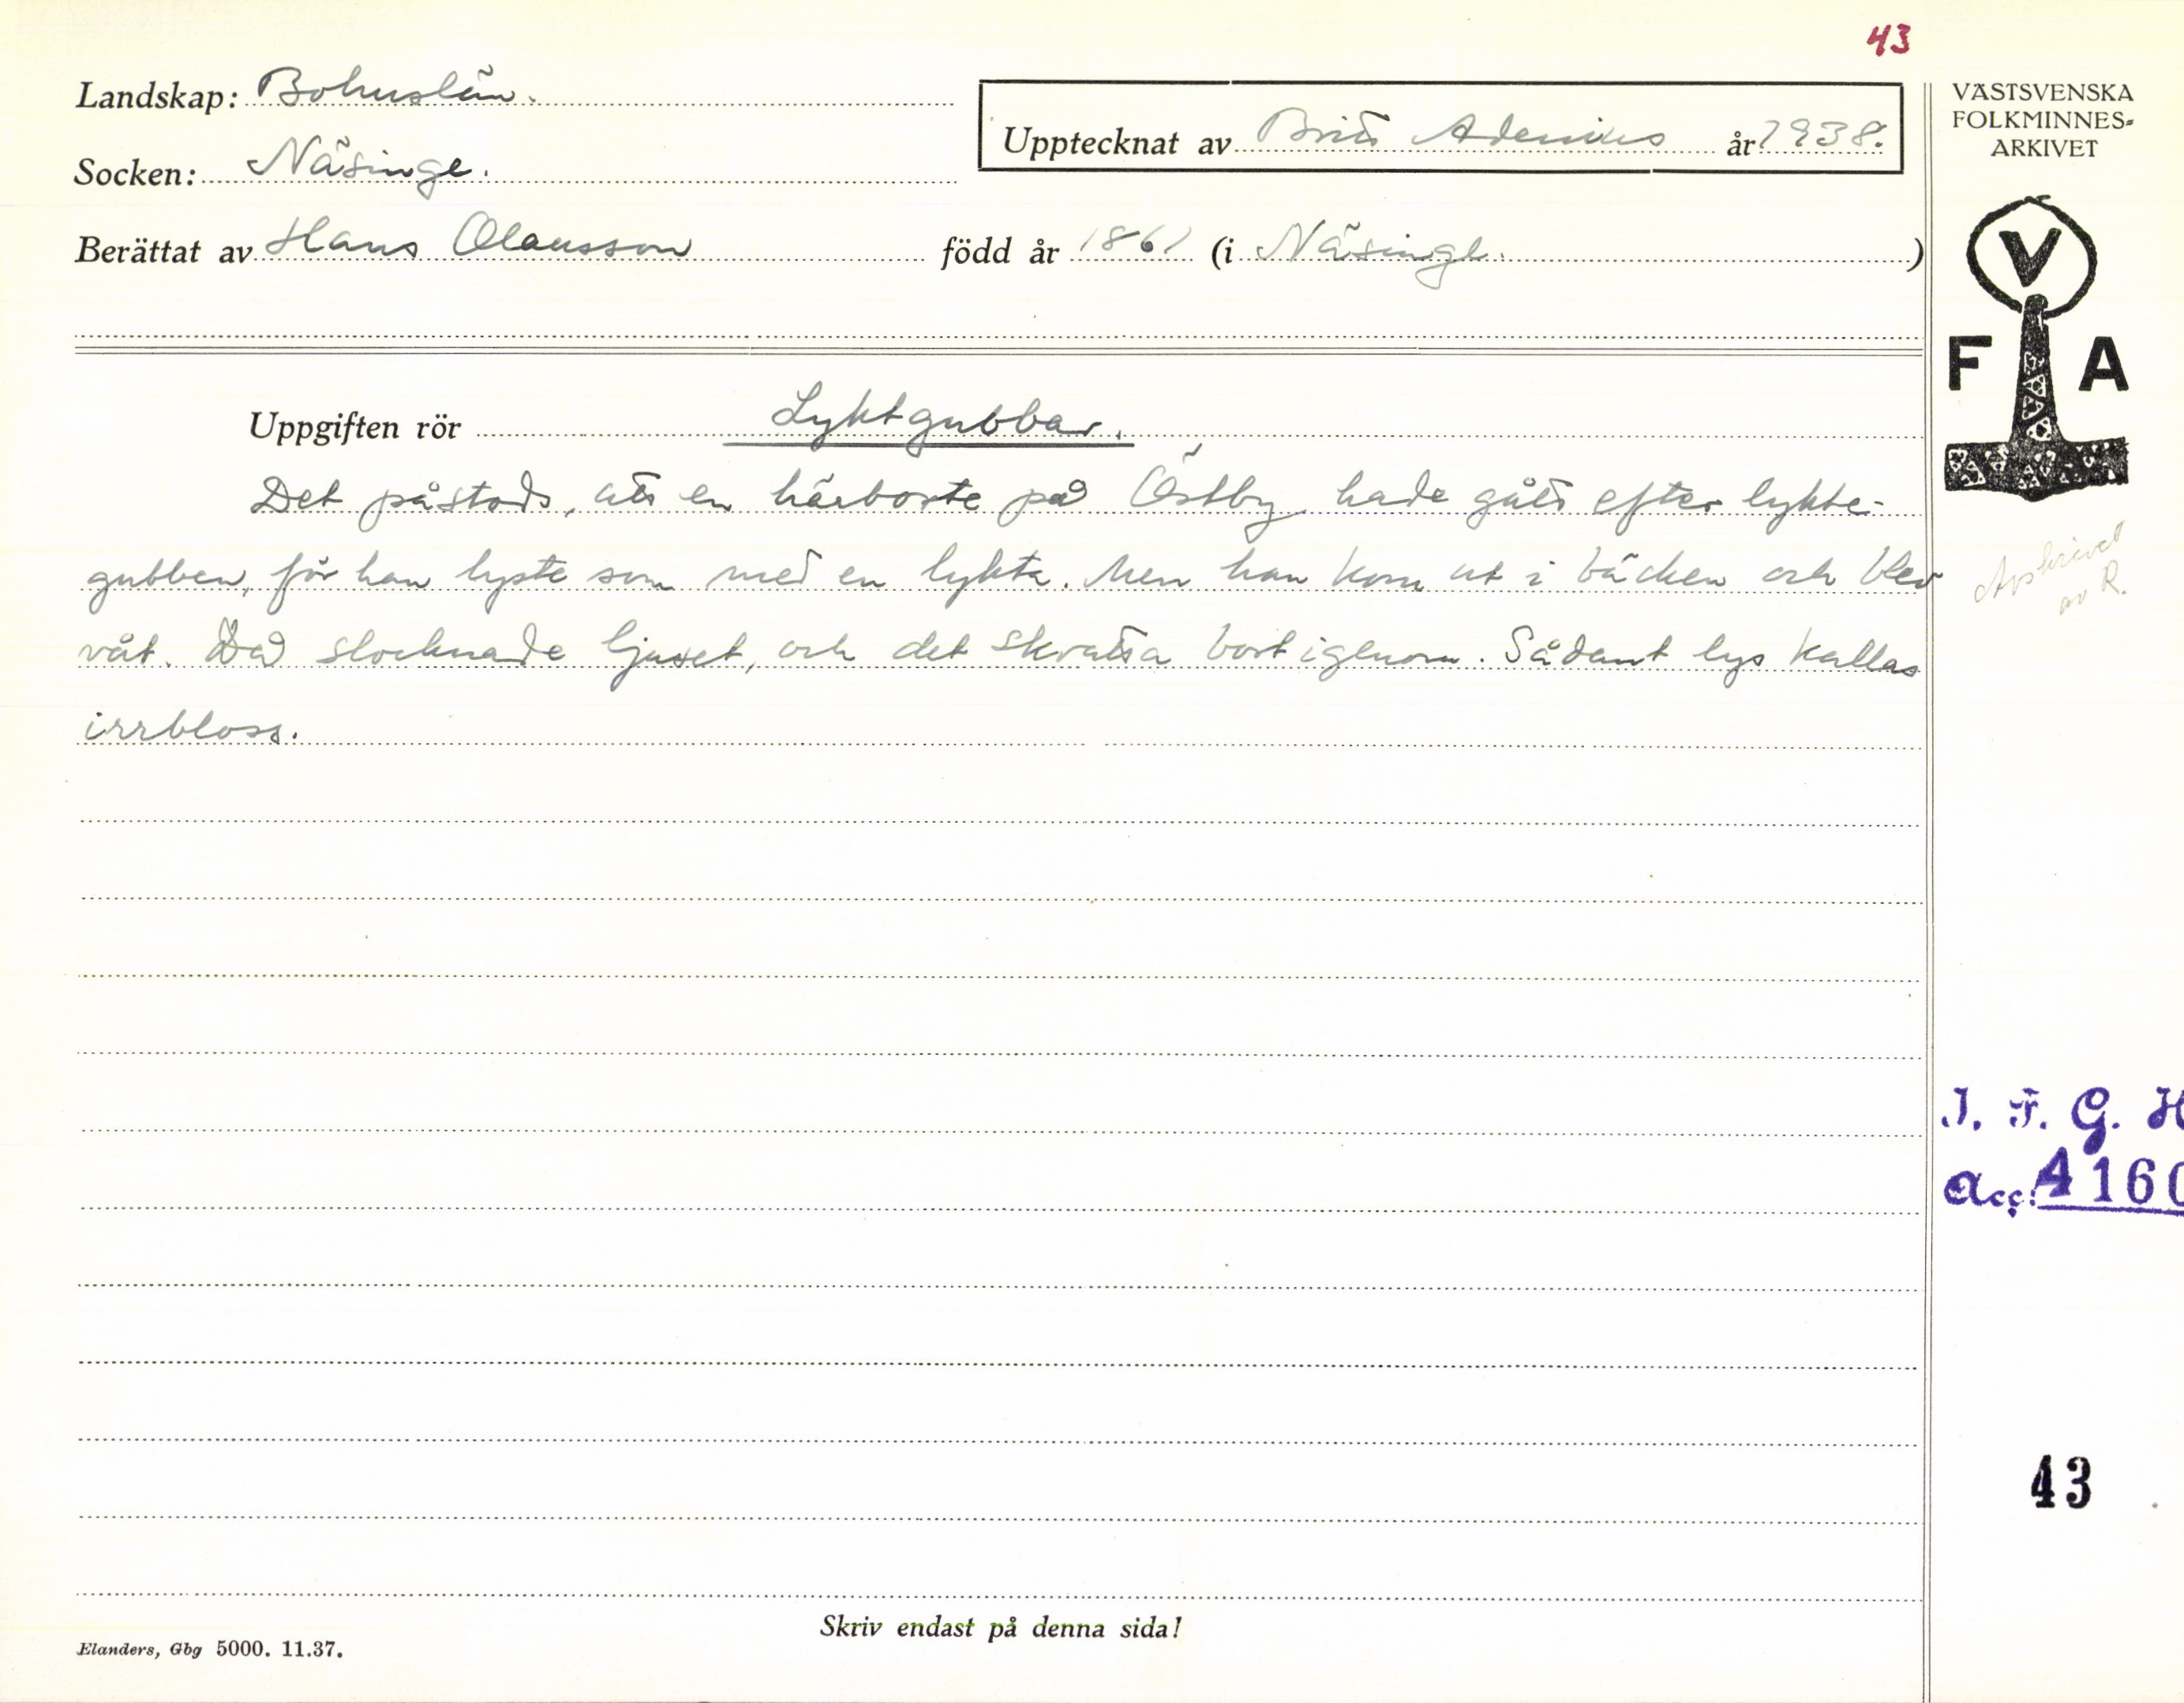 43
Landskap: Bohuslän.
Socken: Näsinge.
Upptecknat av Britt Adenius år 1938.
Berättat av Hans Olausson född år 1861 (i Näsinge.)
VÄSTSVENSKA
FOLKMINNES=
ARKIVET
V
F A
Uppgiften rör Lyktgubbar.
Det påstods, att en härborte på Östby hade gått efter lykte-
gubben, för han lyste som med en lykta. Men han kom ut i bäcken och blev
våt. Då slocknade ljuset, och det skratta bort igenom. Sådant lys kallas
irrbloss.
Avskrivet
av R.
I. F. G. H
Acc: A 160
43
Skriv endast på denna sida!
Elanders, Gbg 5000. 11.37.